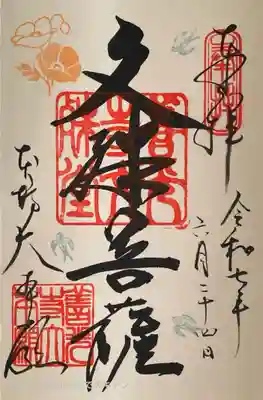 奉拝
令和七年
六月二十四日
文殊菩薩
本坊大本願